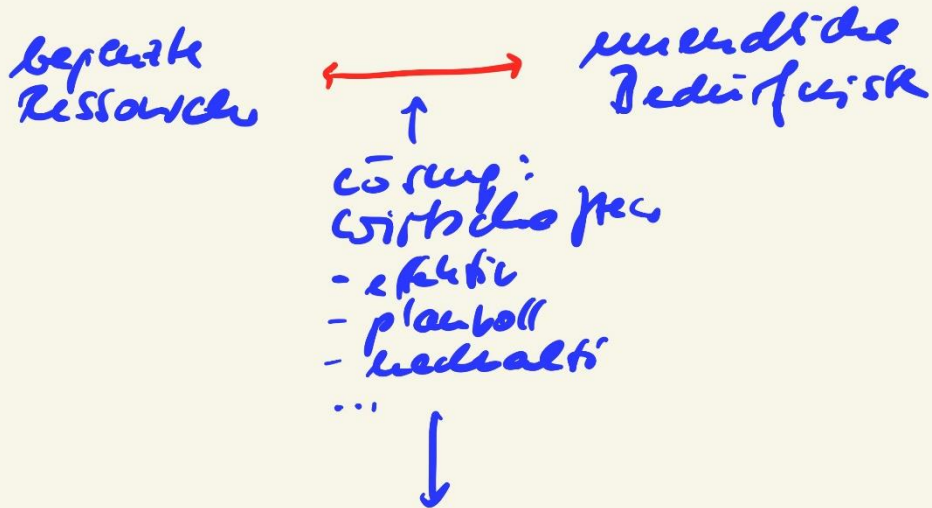 begrenzte
Ressourcen
unendliche
Bedürfnisse
Lösung:
Wirtschaften
- effektiv
- planvoll
- nachhaltig
...